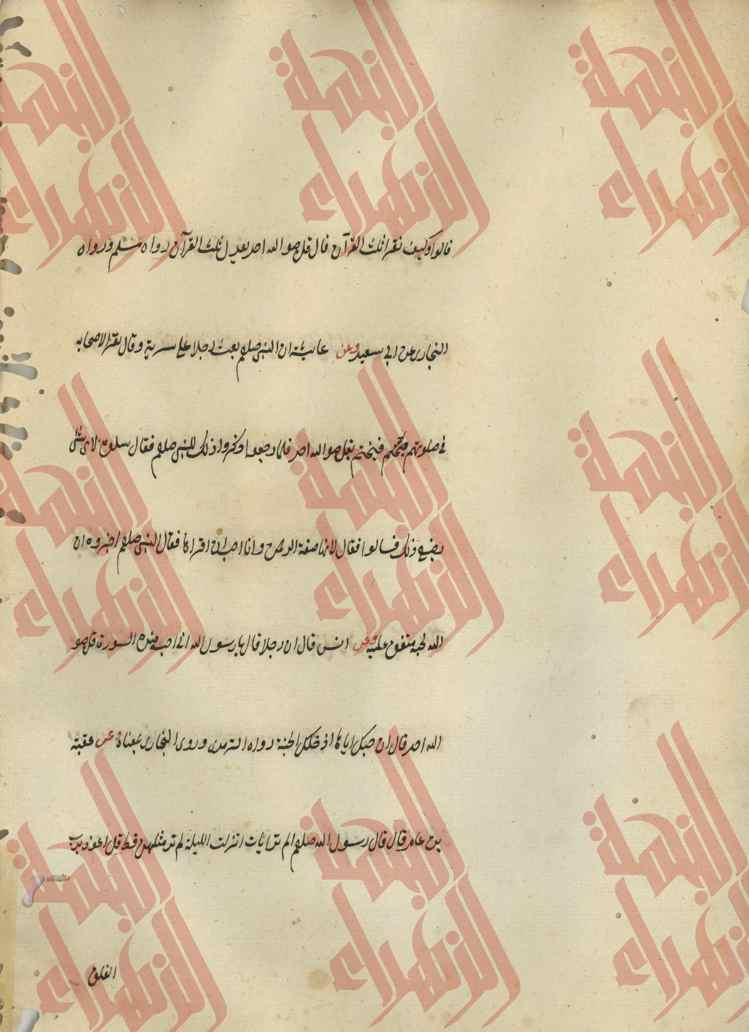 قالوا وكيف نقرأ ثلث القرآن قال قل هو الله احد يعدل ثلث القرآن رواه مسلم ورواه
البخاري عن ابي سعيد وعن عائشة ان النبي صلعم بعث رجلا على سرية وكان يقرأ لاصحابه
في صلوتهم فيختم بقل هو الله احد فلما رجعوا ذكروا ذلك للنبي صلعم فقال سلوه لاي شئ
يصنع ذلك فسألوه فقال لانها صفة الرحمن وانا احب ان اقرأها فقال النبي صلعم اخبروه ان
الله يحبه متفق عليه وعن انس قال ان رجلا قال يا رسول الله اني احب هذه السورة قل هو
الله احد قال ان حبك اياها ادخلك الجنة رواه الترمذي وروى البخاري معناه وعن عقبة
بن عامر قال قال رسول الله صلعم الم تر ايات انزلت الليلة لم ير مثلهن قط قل اعوذ برب
الفلق
النبعة الزهراء